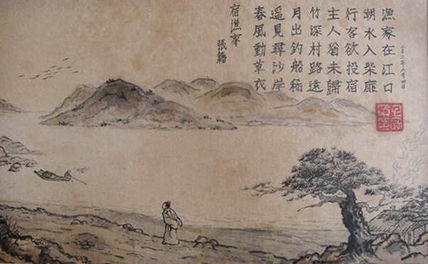 漁家在江口
潮水入柴扉
行客欲投宿
主人未歸
竹深村路遠
月出釣船稀
遙見尋沙岸
春風動草衣
宿漁家
張籍